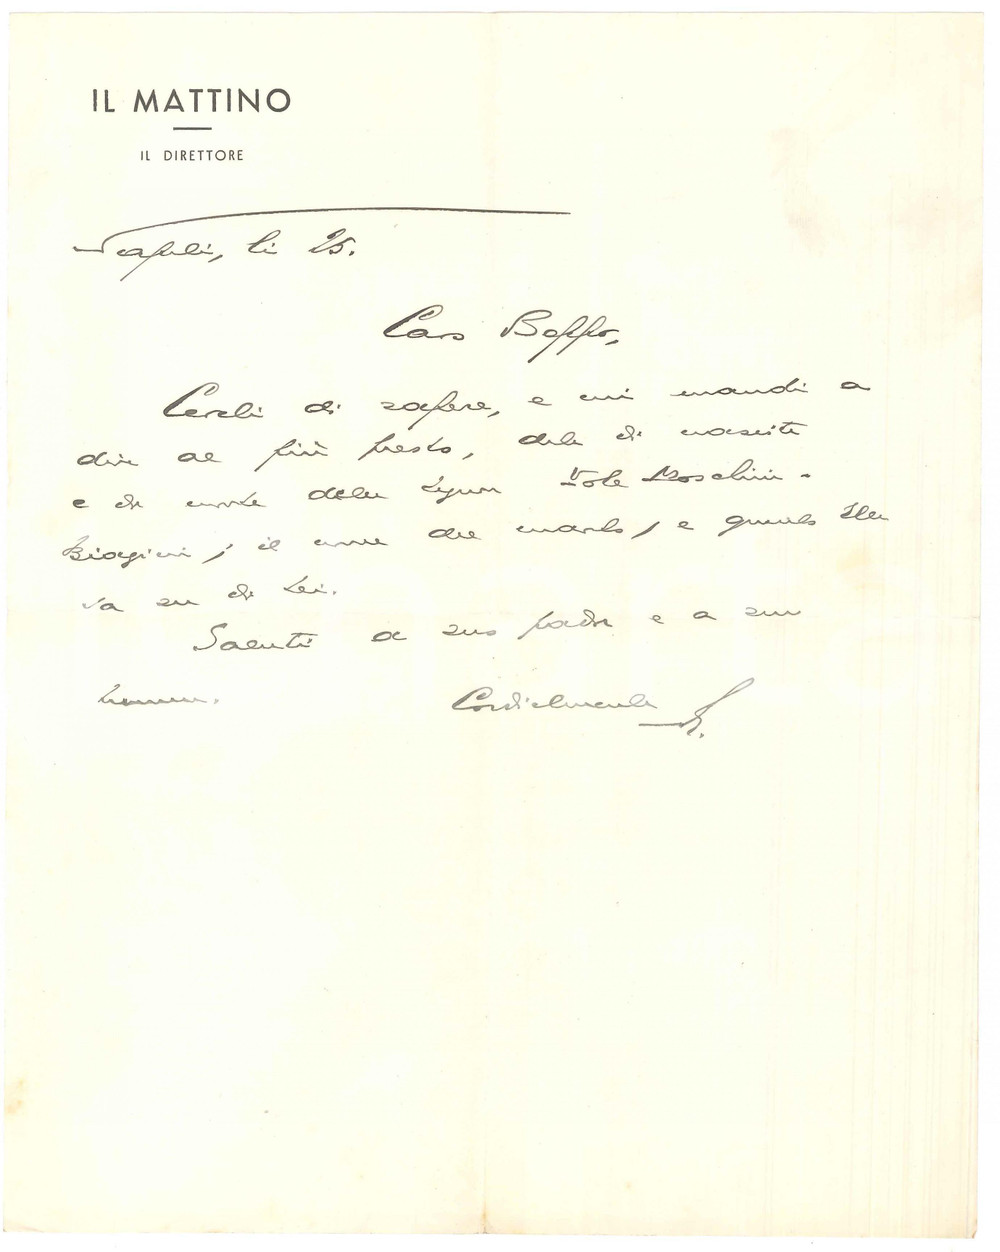 IL MATTINO
IL DIRETTORE
Napoli, li 25.
Caro Beppe,
Cerchi di sapere, e mi mandi a
dire al più presto, date di nascita
e di morte della signora Iole Moschini -
Biagini; il nome del marito, e quanto altro
sa su di lei.
Saluti a suo padre e a sua
mamma. Cordialmente